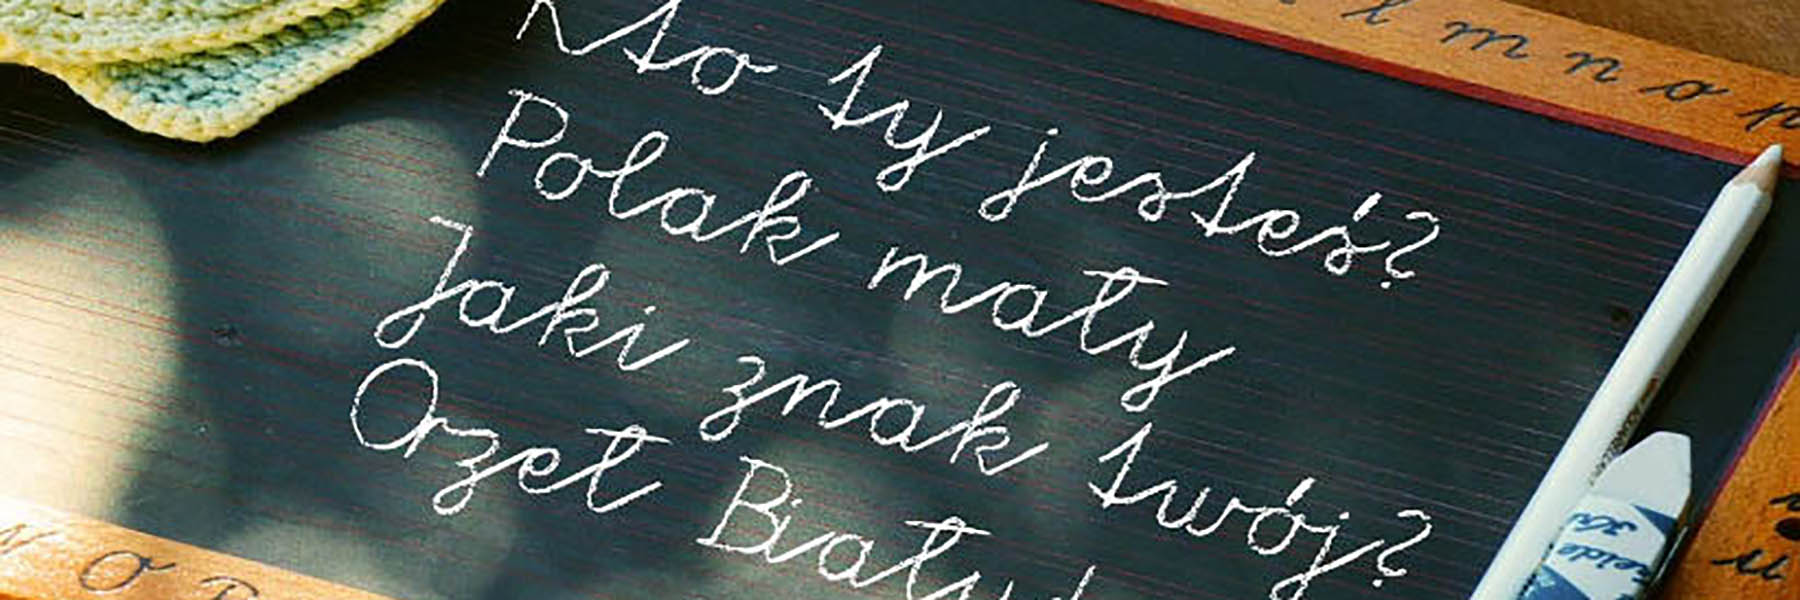 l m n o p
Kto ty jesteś?
Polak mały
Jaki znak twój?
Orzeł Biały!
N O P